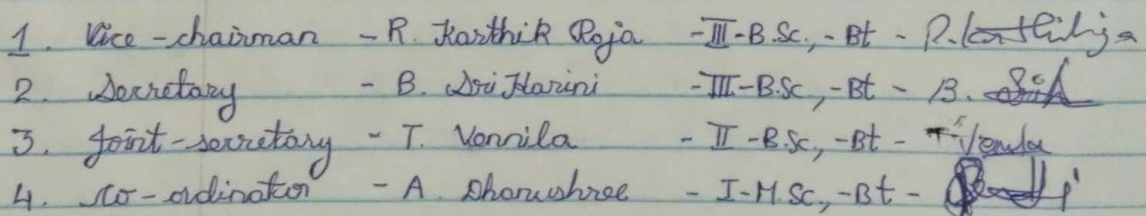 1. Vice-chairman - R. Karthik Raja - III-B.Sc., -Bt -
2. Secretary - B. Sri Harini - III-B.Sc., -Bt - B.
3. Joint-secretary - T. Vennila - II-B.Sc., -Bt -
4. Co-ordinator - A. Dhanushree - I-M.Sc., -Bt -